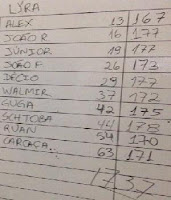 LYRA
ALEX 13 167
JOÃO R. 16 177
JÚNIOR 19 177
JOÃO F 26 173
DÉCIO 29 177
WALMIR 37 172
GUGA 42 175
SCHTOBA 44 178
RUAN 54 170
CARCAÇA 63 171
1737